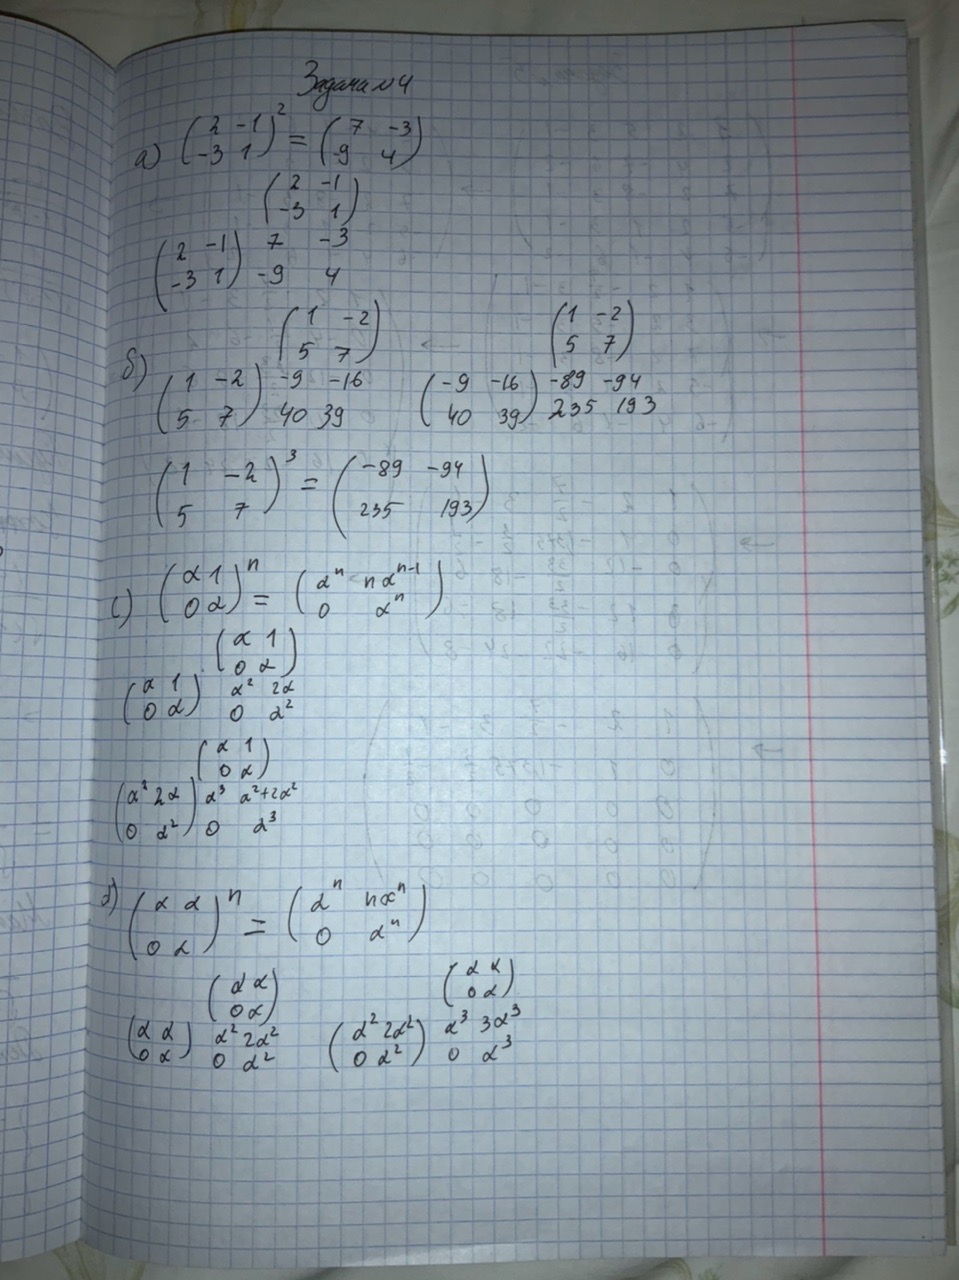 Задача №4
а) (2 -1; -3 1)² = (7 -3; -9 4)
(2 -1; -3 1)
(2 -1; -3 1) 7 -3; -9 4
(1 -2; 5 7) (1 -2; 5 7)
б) (1 -2; 5 7) -9 -16; 40 39 (-9 -16; 40 39) -89 -94; 235 193
(1 -2; 5 7)³ = (-89 -94; 235 193)
c) (α 1; 0 α)ⁿ = (αⁿ nαⁿ⁻¹; 0 αⁿ)
(α 1; 0 α)
(α 1; 0 α) α² 2α; 0 α²
(α 1; 0 α)
(α² 2α; 0 α²) α³ α²+2α²; 0 α³
d) (α α; 0 α)ⁿ = (αⁿ nαⁿ; 0 αⁿ)
(α α; 0 α) (α α; 0 α)
(α α; 0 α) α² 2α²; 0 α² (α² 2α²; 0 α²) α³ 3α³; 0 α³